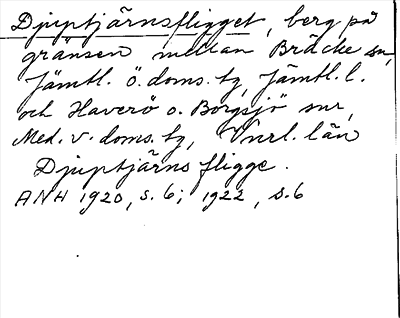 Djuptjärnsfligget, berg på
gränsen mellan Bräcke sn,
Jämtl. ö. doms. tg, Jämtl. l.
och Haverö o. Borgsjö snr,
Med. v. doms. tg, Vnrl. län
Djuptjärns fligge.
ANH 1920, s. 6; 1922, s. 6